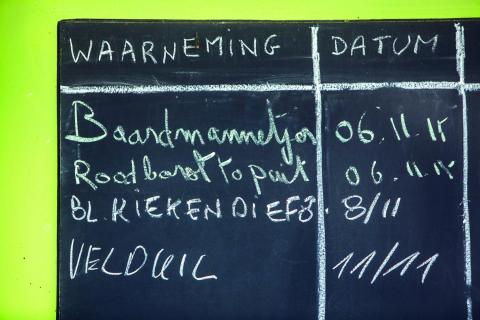 WAARNEMING DATUM
Baardmannetjes 06.11.15
Roodborsttapuit 06.11.15
BL. KIEKENDIEF 8/11
VELDUIL 11/11